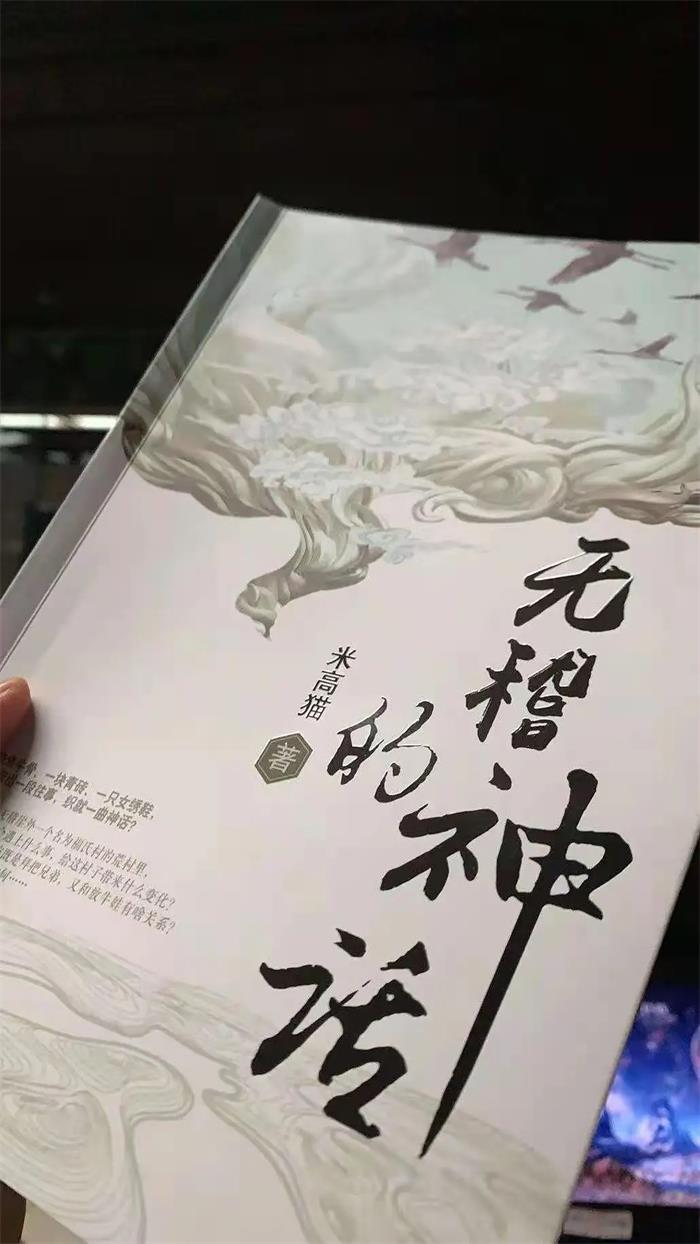 无稽
的神话
米高猫
著
骨、一块青砖、一只女绣鞋,
出一段往事,织就一曲神话?
外一个名为福氏村的荒村里,
遇上什么事,给这村子带来什么变化?
是拜把兄弟,又和放牛娃有啥关系?